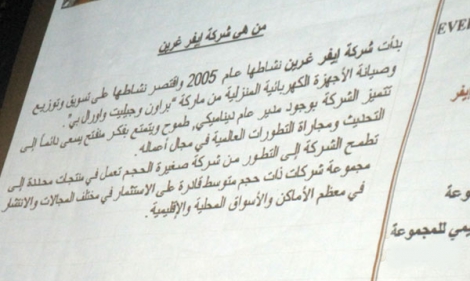 من هي شركة إيفر غرين
بدأت شركة إيفر غرين نشاطها عام 2005 واقتصر نشاطها على تسويق وتوزيع
وصيانة الأجهزة الكهربائية المنزلية من ماركة "براون وجيليت واورال بي".
تتميز الشركة بوجود مدير عام ديناميكي، طموح ويتمتع بفكر منفتح يسعى دائماً إلى
التحديث ومجاراة التطورات العالمية في مجال أعماله.
تطمح الشركة إلى التطور من شركة صغيرة الحجم تعمل في منتجات محددة إلى
مجموعة شركات ذات حجم متوسط قادرة على الاستثمار في مختلف المجالات والانتشار
في معظم الأماكن والأسواق المحلية والإقليمية.
EVE
يفر
وعة
يمي للمجموعة